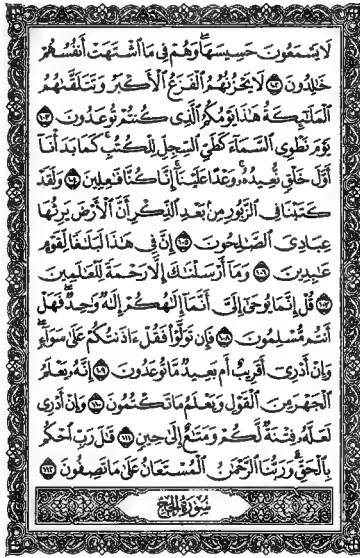 لَا يَسْمَعُونَ حَسِيسَهَا ۖ وَهُمْ فِي مَا ٱشْتَهَتْ أَنفُسُهُمْ
خَٰلِدُونَ ١٠٢ لَا يَحْزُنُهُمُ ٱلْفَزَعُ ٱلْأَكْبَرُ وَتَتَلَقَّىٰهُمُ
ٱلْمَلَٰٓئِكَةُ هَٰذَا يَوْمُكُمُ ٱلَّذِي كُنتُمْ تُوعَدُونَ ١٠٣
يَوْمَ نَطْوِي ٱلسَّمَآءَ كَطَيِّ ٱلسِّجِلِّ لِلْكُتُبِ ۚ كَمَا بَدَأْنَآ
أَوَّلَ خَلْقٍ نُّعِيدُهُۥ ۚ وَعْدًا عَلَيْنَآ ۚ إِنَّا كُنَّا فَٰعِلِينَ ١٠٤ وَلَقَدْ
كَتَبْنَا فِي ٱلزَّبُورِ مِنۢ بَعْدِ ٱلذِّكْرِ أَنَّ ٱلْأَرْضَ يَرِثُهَا
عِبَادِيَ ٱلصَّٰلِحُونَ ١٠٥ إِنَّ فِي هَٰذَا لَبَلَٰغًا لِّقَوْمٍ
عَٰبِدِينَ ١٠٦ وَمَآ أَرْسَلْنَٰكَ إِلَّا رَحْمَةً لِّلْعَٰلَمِينَ
١٠٧ قُلْ إِنَّمَا يُوحَىٰٓ إِلَيَّ أَنَّمَآ إِلَٰهُكُمْ إِلَٰهٌ وَٰحِدٌ ۖ فَهَلْ
أَنتُم مُّسْلِمُونَ ١٠٨ فَإِن تَوَلَّوْا۟ فَقُلْ ءَاذَنتُكُمْ عَلَىٰ سَوَآءٍ ۖ
وَإِنْ أَدْرِيٓ أَقَرِيبٌ أَم بَعِيدٌ مَّا تُوعَدُونَ ١٠٩ إِنَّهُۥ يَعْلَمُ
ٱلْجَهْرَ مِنَ ٱلْقَوْلِ وَيَعْلَمُ مَا تَكْتُمُونَ ١١٠ وَإِنْ أَدْرِي
لَعَلَّهُۥ فِتْنَةٌ لَّكُمْ وَمَتَٰعٌ إِلَىٰ حِينٍ ١١١ قَٰلَ رَبِّ ٱحْكُم
بِٱلْحَقِّ ۗ وَرَبُّنَا ٱلرَّحْمَٰنُ ٱلْمُسْتَعَانُ عَلَىٰ مَا تَصِفُونَ ١١٢
سُورَةُ الحَجِّ